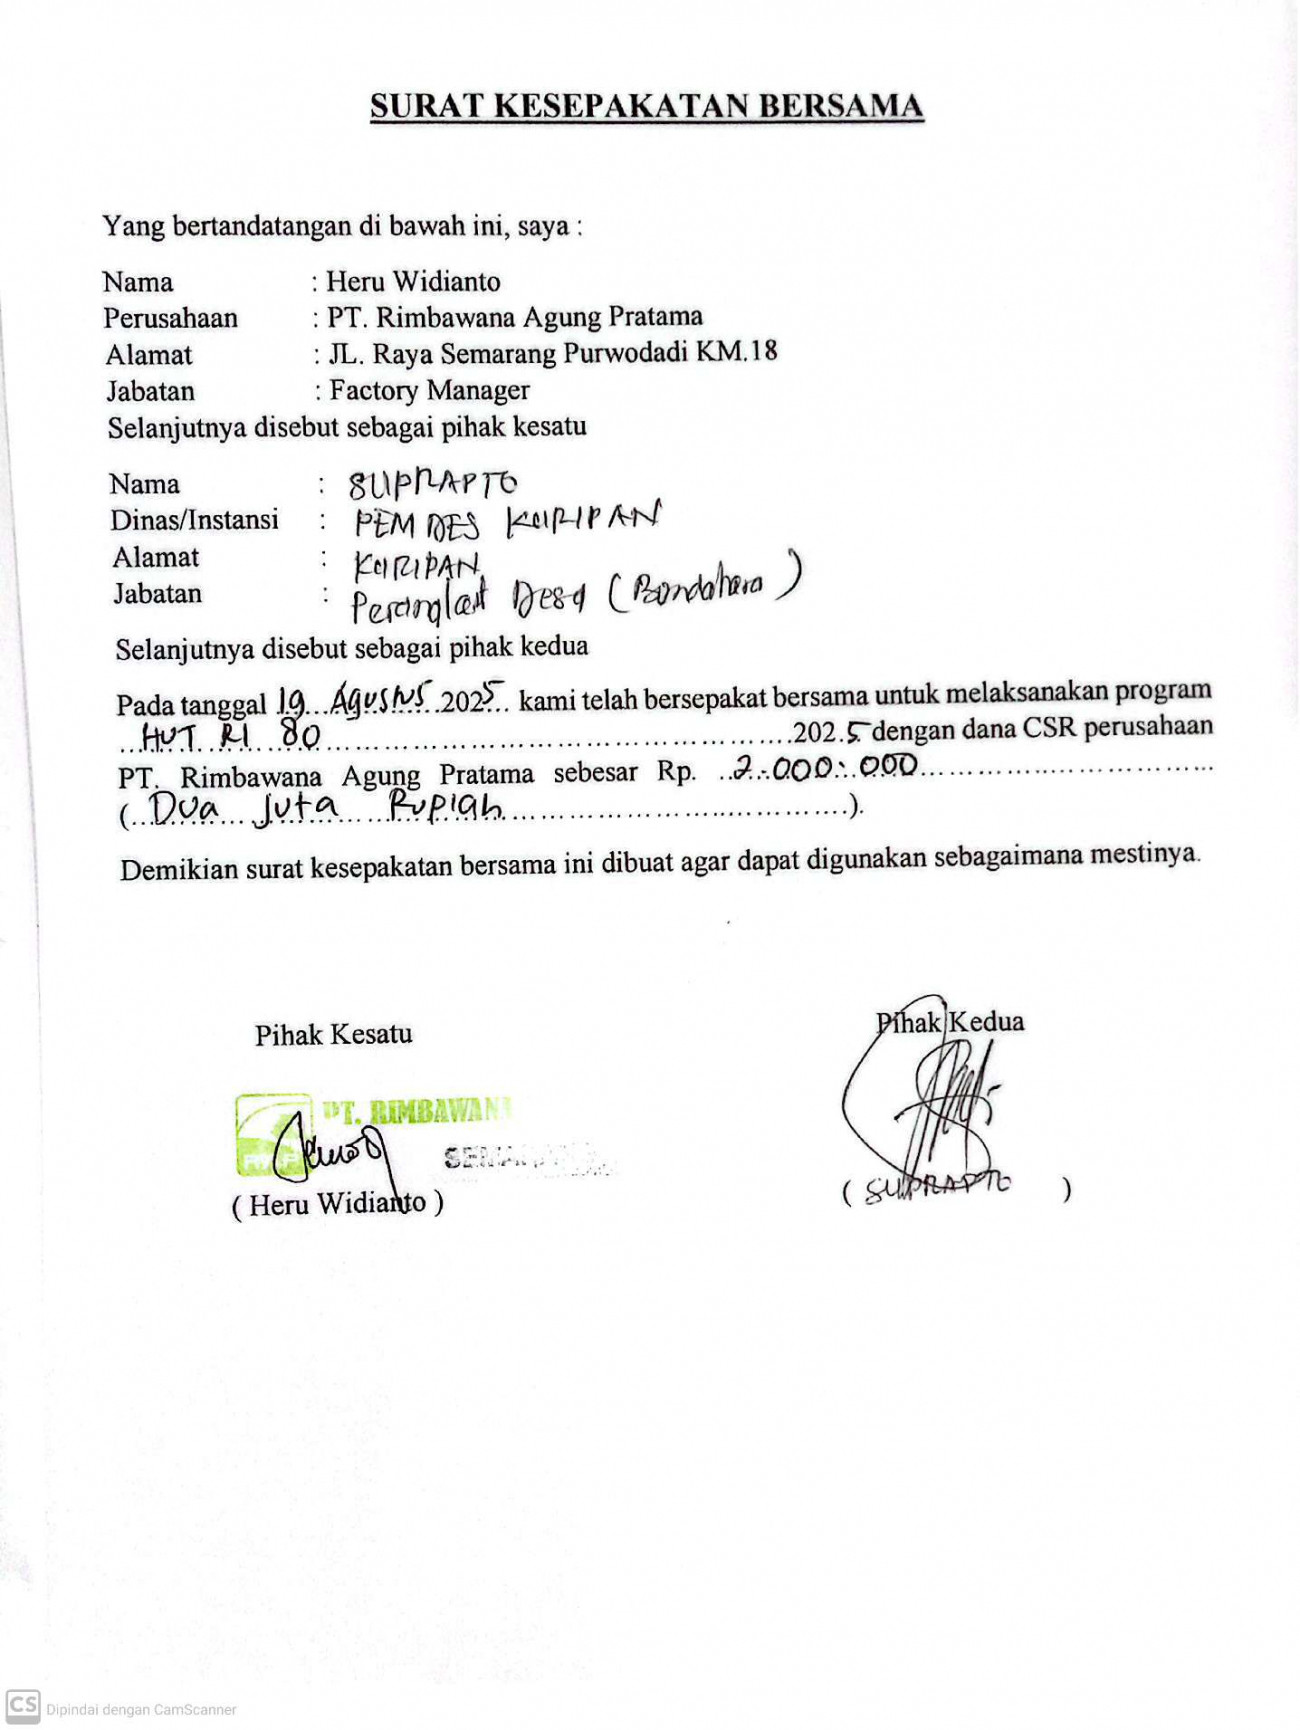 SURAT KESEPAKATAN BERSAMA
Yang bertandatangan di bawah ini, saya :
Nama : Heru Widianto
Perusahaan : PT. Rimbawana Agung Pratama
Alamat : JL. Raya Semarang Purwodadi KM.18
Jabatan : Factory Manager
Selanjutnya disebut sebagai pihak kesatu
Nama : SUPRAPTO
Dinas/Instansi : PEMDES KURIPAN
Alamat : KURIPAN
Jabatan : Perangkat Desa (Bendahara)
Selanjutnya disebut sebagai pihak kedua
Pada tanggal 19...Agustus..2025.. kami telah bersepakat bersama untuk melaksanakan program
...HUT RI 80...202.5 dengan dana CSR perusahaan
PT. Rimbawana Agung Pratama sebesar Rp. ..2.000.000...
(..Dua Juta Rupiah...).
Demikian surat kesepakatan bersama ini dibuat agar dapat digunakan sebagaimana mestinya.
Pihak Kesatu
Pihak Kedua
PT. RIMBAWAN
( Heru Widianto )
( SUPRAPTO )
CS Dipindai dengan CamScanner